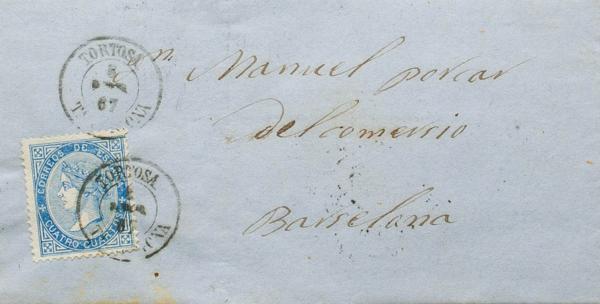 TORTOSA
67
Manuel porcar
del comersio
Barselona
CORREOS DE ES
CUATRO CUAR
TORTOSA